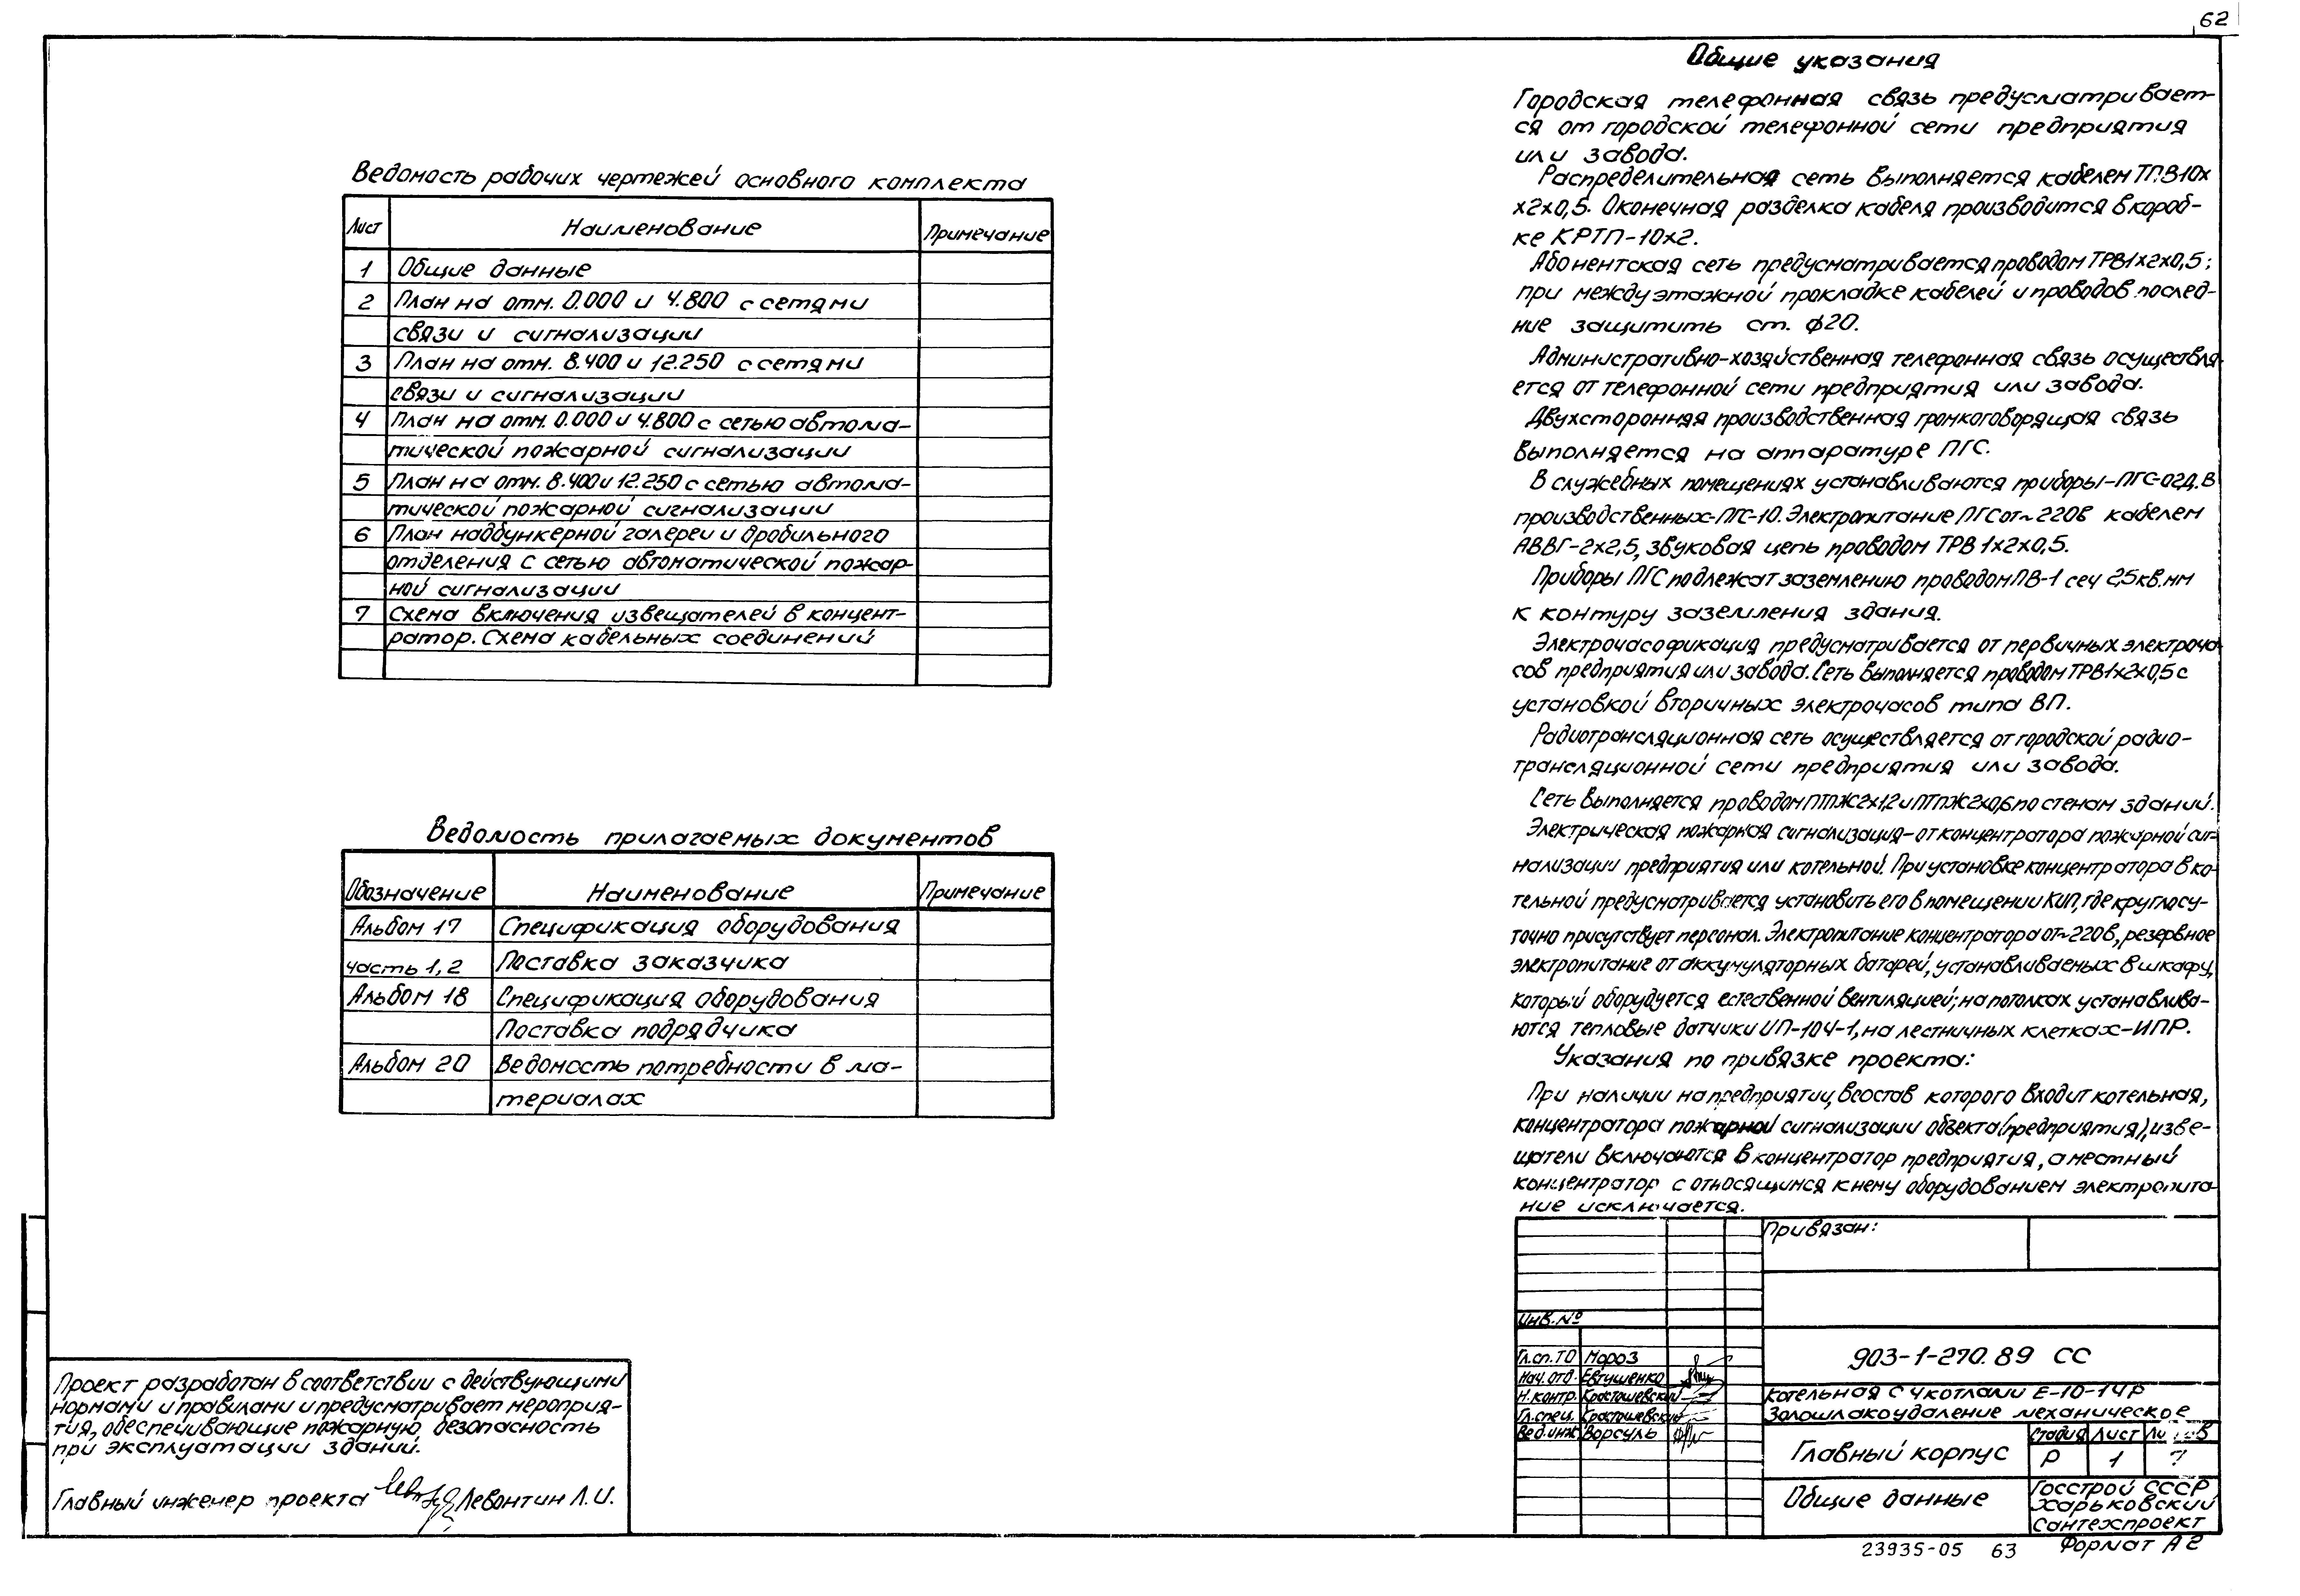 62
Ведомость рабочих чертежей основного комплекта
Лист Наименование Примечание
1 Общие данные
2 План на отм. 0.000 и 4.800 с сетями
связи и сигнализации
3 План на отм. 8.400 и 12.250 с сетями
связи и сигнализации
4 План на отм. 0.000 и 4.800 с сетью автома-
тической пожарной сигнализации
5 План на отм. 8.400 и 12.250 с сетью автома-
тической пожарной сигнализации
6 План надбункерной галереи и дробильного
отделения с сетью автоматической пожар-
ной сигнализации
7 Схема включения извещателей в концент-
ратор. Схема кабельных соединений
Ведомость прилагаемых документов
Обозначение Наименование Примечание
Альбом 17 Спецификация оборудования
часть 1, 2 Поставка заказчика
Альбом 18 Спецификация оборудования
Поставка подрядчика
Альбом 20 Ведомость потребности в ма-
териалах
Проект разработан в соответствии с действующими
нормами и правилами и предусматривает мероприя-
тия, обеспечивающие пожарную безопасность
при эксплуатации зданий.
Главный инженер проекта Левонтин Л.И.
Общие указания
Городская телефонная связь предусматривает-
ся от городской телефонной сети предприятия
или завода.
Распределительная сеть выполняется кабелем ТПВ10х
х2х0,5. Оконечная разделка кабеля производится в короб-
ке КРТП-10х2.
Абонентская сеть предусматривается проводом ТРВ1х2х0,5;
при междуэтажной прокладке кабелей и проводов послед-
ние защитить ст. ф20.
Административно-хозяйственная телефонная связь осуществля
ется от телефонной сети предприятия или завода.
Двухсторонняя производственная громкоговорящая связь
выполняется на аппаратуре ПГС.
В служебных помещениях устанавливаются приборы-ПГС-02Д. В
производственных-ПГС-10. Электропитание ПГС от ~220в кабелем
АВВГ-2х2,5, звуковая цепь проводом ТРВ 1х2х0,5.
Приборы ПГС подлежат заземлению проводом ПВ-1 сеч 2,5кв.мм
к контуру заземления здания.
Электрочасофикация предусматривается от первичных электроча
сов предприятия или завода. Сеть выполняется проводом ТРВ1х2х0,5 с
установкой вторичных электрочасов типа ВП.
Радиотрансляционная сеть осуществляется от городской радио-
трансляционной сети предприятия или завода.
Сеть выполняется проводом ПТПЖ2х1,2 и ПТПЖ2х0,6 по стенам зданий.
Электрическая пожарная сигнализация-от концентратора пожарной сиг-
нализации предприятия или котельной. При установке концентратора в ко-
тельной предусматривается установить его в помещении КИП, где круглосу-
точно присутствует персонал. Электропитание концентратора от ~220в, резервное
электропитание от аккумуляторных батарей, устанавливаемых в шкафу,
который оборудуется естественной вентиляцией; на потолках устанавлива-
ются тепловые датчики ИП-104-1, на лестничных клетках-ИПР.
Указания по привязке проекта:
При наличии на предприятии, в состав которого входит котельная,
концентратора пожарной сигнализации объекта (предприятия), изве-
щатели включаются в концентратор предприятия, а местный
концентратор с относящимся к нему оборудованием электропита
ние исключается.
Привязан:
Инв. №
Гл.сп.ТО Мороз
Нач.отд. Евтушенко
Н.контр. Красташевский
Гл.спец. Красташевский
Вед.инж Ворсуль
903-1-270.89 СС
Котельная с 4 котлами Е-10-14Р
Золошлакоудаление механическое
Главный корпус
Стадия Лист
Р 1 7
Общие данные
Госстрой СССР
Харьковский
Сантехпроект
23935-05 63 Формат А2